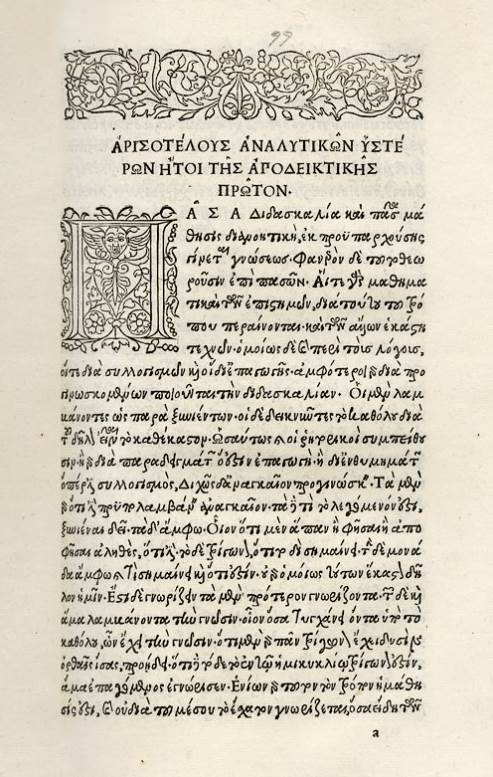 99
ΑΡΙΣΟΤΈΛΟΥΣ ἈΝΑΛΥΤΙΚΩ͂Ν ὙΣΤΈ
ΡΩΝ ἨΤΟΙ ΤΗ͂Σ ἈΠΟΔΕΙΚΤΙΚΗ͂Σ
ΠΡΩ͂ΤΟΝ·
ΠΑ͂ΣΑ Διδασκαλία καὶ πᾶσα μά
θησις διανοητικὴ, ἐκ προϋπαρχούσης
γίνεται γνώσεως. Φανερὸν δὲ τοῦτο θεω
ροῦσιν ἐπὶ πασῶν· Αἵ τε γὰρ μαθημα
τικαὶ τῶν ἐπιστημῶν, διὰ τούτου τοῦ τρό
που περαίνονται· καὶ τῶν ἄλλων ἑκάστη
τεχνῶν· ὁμοίως δὲ καὶ περὶ τοὺς λόγους,
οἵ τε διὰ συλλογισμῶν καὶ οἱ δι' ἐπαγωγῆς· ἀμφότεροι γὰρ διὰ προ
γινωσκομένων ποιοῦνται τὴν διδασκαλίαν· Οἱ μὲν λαμ
βάνοντες ὡς παρὰ ξυνιέντων· οἱ δὲ δεικνύντες τὸ καθόλου διὰ
τοῦ δῆλον εἶναι τὸ καθέκαστον· Ὡσαύτως δὲ καὶ οἱ ῥητορικοὶ συμπείθου
σιν· ἢ γὰρ διὰ παραδειγμάτων ὅ ἐστιν ἐπαγωγὴ· ἢ δι' ἐνθυμημάτων
ὅπερ ἐστὶ συλλογισμός. Διχῶς δ' ἀναγκαῖον προγινώσκειν· Τὰ μὲν
γὰρ ὅτι ἐστὶ, προϋπολαμβάνειν ἀναγκαῖον· τὰ δὲ τί τὸ λεγόμενόν ἐστι,
ξυνιέναι δεῖ· τὰ δ' ἄμφω· Οἷον ὅτι μὲν ἅπαν ἢ φῆσαι ἢ ἀπο
φῆσαι ἀληθὲς, ὅτι ἐστί· τὸ δὲ τρίγωνον, ὅτι τοδὶ σημαίνει· τὴν δὲ μονά
δα ἄμφω, καὶ τί σημαίνει καὶ ὅτι ἐστίν· οὐ γὰρ ὁμοίως τούτων ἕκαστον δῆ
λον ἡμῖν· Ἔστι δὲ γνωρίζειν τὰ μὲν πρότερον γνωρίζοντα· τῶν δὲ καὶ
ἅμα λαμβάνοντα τὴν γνῶσιν· οἷον ὅσα τυγχάνει ὄντα ὑπὸ τὸ
καθόλου, ὧν ἔχει τὴν γνῶσιν· ὅτι μὲν γὰρ πᾶν τρίγωνον ἔχει δυσὶν
ὀρθαῖς ἴσας, προῄδει· ὅτι δὲ τόδε τὸ ἐν τῷ ἡμικυκλίῳ τρίγωνόν ἐστιν,
ἅμα ἐπαγόμενος ἐγνώρισεν· Ἐνίων γὰρ τοῦτον τὸν τρόπον ἡ μάθη
σίς ἐστι, καὶ οὐ διὰ τοῦ μέσου τὸ ἔσχατον γνωρίζεται, ὅσα ἤδη τῶν
a